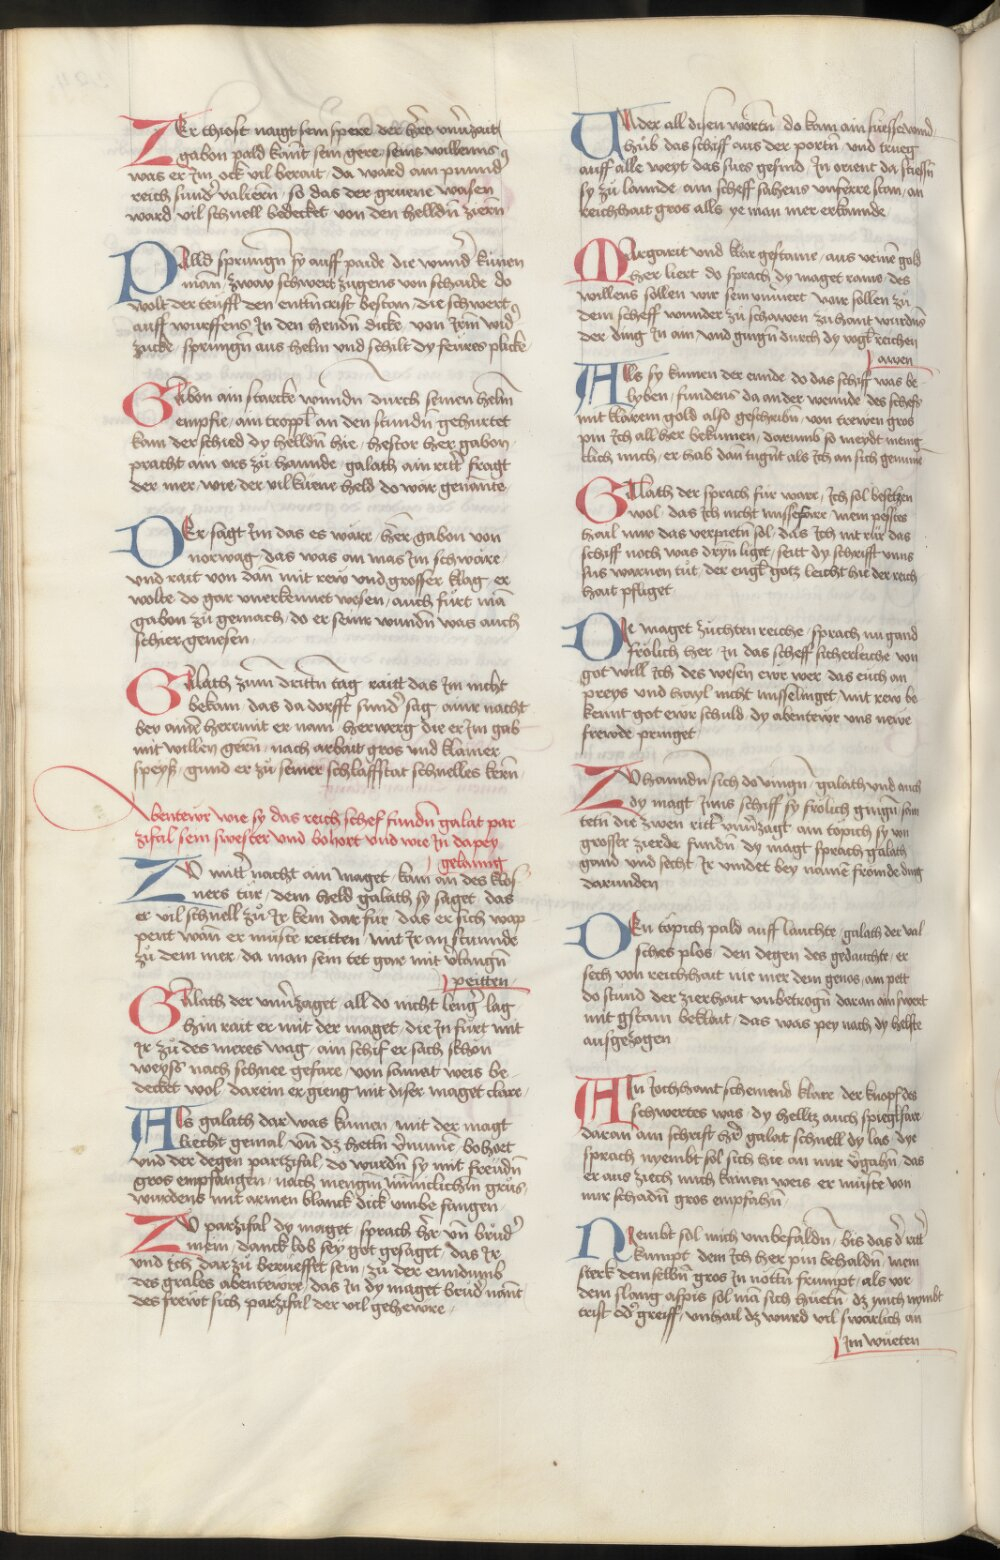 ZEr thiost naigt sein spere der here vnverzait
gabon pald kumt sein gere, seins willenns
was er Im ock vil berait, da ward ain puneiß
reich sunder valiern, so das der gruene wasen
ward vil schnell bedecket von den helldñ ziern
PAlld sprungñ sy auff paide die wund͛ kuenen
man, zway schwert zugens von schaide do
wolt der teufft den enttincrist bestan, die schwert
auff wurffens In den hendñ dicke, von Irm wid͛
zucke, sprungñ aus helm vnd schilt dy feures plicke
GAbon ain starcke wundñ durch seinen helm
empfie, ain troppl an den stundñ gehurtet
kam der schied dy helldñ hie, hestor her gabon
pracht ain ors zů hannde, galath ain ritt͛ fragt
der mer, wie der vil kuene held do war genante
DEr sagt Im das es wäre, her gabon von
norwag, das was an mas Im schwäre,
vnd rait von dañ mit rew vnd grosser klag, er
wolte do gar vnerkennet wesen, auch furt mã
gabon zů gemach, do er seinr wundñ was auch
schier genesen
GAlath zum drittñ tag, raitt das Im nicht
bekam, das da dorfft sund͛ sag, ainr nacht
bey ainē heremit er nam, herwerg die er Im gab
mit willen gern, nach arbait gros vnd klainer
speyß, gund er zů seiner schlaffstat schnelles kern
Abentewr wie sy das reich schef fundñ galat par
zifal sein swester vnd bohort vnd wie In dapey
gelanng
ZV mitt͛ nacht ain maget, kam an des klos
ners tür, dem held galath sy saget, das
er vil schnell zů Ir kem dar für, das er sich wap
pent wañ er muste reitten, mit Ir an stunnde
zů dem mer, da man sein tet gar mit v͛langñ
peitten
GAlath der vnv͛zaget, all do nicht leng͛ lag
hin rait er mit der maget, die In fürt mit
Ir zů des meres wag, ain schif er sach schon
weyss nach schnee gefare, von samat weis be-
decket wol, darein er gieng mit diser maget clare
Als galath dar was kumen, mit der magt
liecht gemal, vñ dz hettñ v͛numē, bohort
vnd der degen partzifal, do wurdñ sy mit freudñ
gros empfangen, nach mengm minnclichm grůs,
wurdens mit armen blanck dick vmbe fangen
ZV parzifal dy maget, sprach her vñ brůd͛
mein, danck lob sey got gesaget, das Ir
vnd Ich dar zů berueffet sein, zů der einndumb
des grales abentewre, das In dy maget brůd͛ nant
des frewt sich parzifal der vil gehewre
UNder all disen wortñ do kam ain suesser wind
hůb das schiff aus der portñ, vnd trueg
auff alle weyt das sues gesind, In orient da stiessñ
sy zů lannde, ain scheff sahens vnferre stan, an
reichhait gros alls ye man mer erkannde
MArgarit vnd klar gestaine, aus veinē gold
her liert, do sprach dy maget raine, des
willens sollen wir sein vniert, wir sollen zů
dem scheff wunder zů schawen, zuhant wurdñs
der ding In ain, vnd gingñ durch dy wgl reichen
awen
Als sy kumen der ennde, do das schiff was be
lyben, fundens da an der wennde, des scheffs
mit klarem gold also geschribñ, von trewen gros
pin Ich all her bekumen, darumb so meydt menig
clich mich, er hab dan tugnt als Ich an sich genume
GAlath der sprach fur warr, Ich sol besehen
wol, das Ich nicht missefarr, wem pesstes
hail mir das verpietñ sol, das Ich nit rur das
schiff noch was dryñ liget, seitt dy schrifft vnns
sus warnen tüt, der engl gotz leicht hie der reich
hait pfliget
DIe maget zuchten reiche, sprach nu gand
frölich her, In das scheff sicherleiche, von
got will Ich des wesen ewr wer, das euch an
preys vnd hayl nicht misselinget, mit rew be
kennt got ewr schuld, dy abentewr vns newe
frewde pringet
ZVhanndñ sich do viengñ, galath vnd auch
dy magt Inns schiff sy frolich giengñ, sam
tetñ die zwen ritt͛ vnv͛zagt, ain topich sy von
grosser zierde fundñ, dy magt sprach galath
gand vnd secht, Ir vindet bey namē fromde ding
darunden
DEn topich pald auff lauchte, galath der val
sches plos, den degen des gedauchte, er
sech von reichhait nie mer dem genos, am pett
do stund der zierhait vnbetrogñ, daran ain swert
mit gstain beklait, das was pey nach dy helffte
ausgezogen
AIn Jochhant scheinend klare, der knopf des
schwertes was, dy helltz auch spieglfare
daran ain schrift her galat schnell dy las, dye
sprach nyembt sol sich hie an mir v͛gahñ, das
er aus ziech mich kainen weis, er muste von
mir schadñ gros empfahñ
NIembt sol mich vmbefaldñ, bis das d͛ ritt͛
kumpt, dem Ich her pin behaldñ, wem
sterk demselbñ gros In nottñ frumpt, als vor
dem slang aspis sol mã sich hüetñ, dz mich nymbt
trist od͛ greiff, vnhail dz wurd vil swärlich an
Im wueten